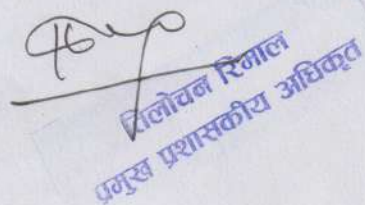 त्रिलोचन रिमाल
प्रमुख प्रशासकीय अधिकृत